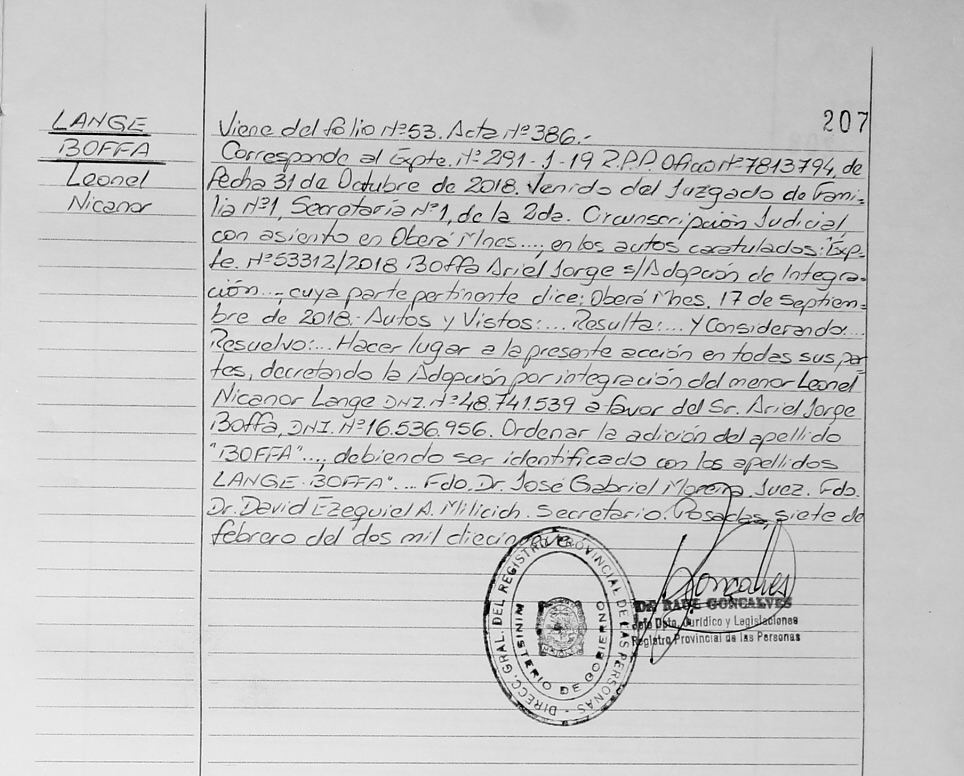 207
LANGE
BOFFA
Leonel
Nicanor
Viene del folio Nº53. Acta Nº386.-
Corresponde al Expte. Nº291-J-19 R.P.P. Oficio Nº7813794, de
fecha 31 de Octubre de 2018. Venido del Juzgado de Fami-
lia Nº1, Secretaría Nº1, de la 2da. Circunscripción Judicial,
con asiento en Oberá Mnes...., en los autos caratulados: "Exp-
te. Nº53312/2018 Boffa Ariel Jorge s/Adopción de Integra-
ción...", cuya parte pertinente dice: Oberá Mnes. 17 de Septiem-
bre de 2018.- Autos y Vistos:... Resulta:... Y Considerando:...
Resuelvo:... Hacer lugar a la presente acción en todas sus par-
tes, decretando la Adopción por integración del menor Leonel
Nicanor Lange DNI. Nº48.741.539 a favor del Sr. Ariel Jorge
Boffa, DNI. Nº16.536.956. Ordenar la adición del apellido
"BOFFA"...., debiendo ser identificado con los apellidos
LANGE-BOFFA"... Fdo. Dr. José Gabriel Moreno. Juez. Fdo.
Dr. David Ezequiel A. Milicich. Secretario. Posadas, siete de
febrero del dos mil diecinueve.
DIRECC. GRAL. DEL REGISTRO PROVINCIAL DE LAS PERSONAS -
MINISTERIO DE GOBIERNO
Goncalves
DR. RAUL GONCALVES
Jefe Dpto. Jurídico y Legislaciones
Registro Provincial de las Personas